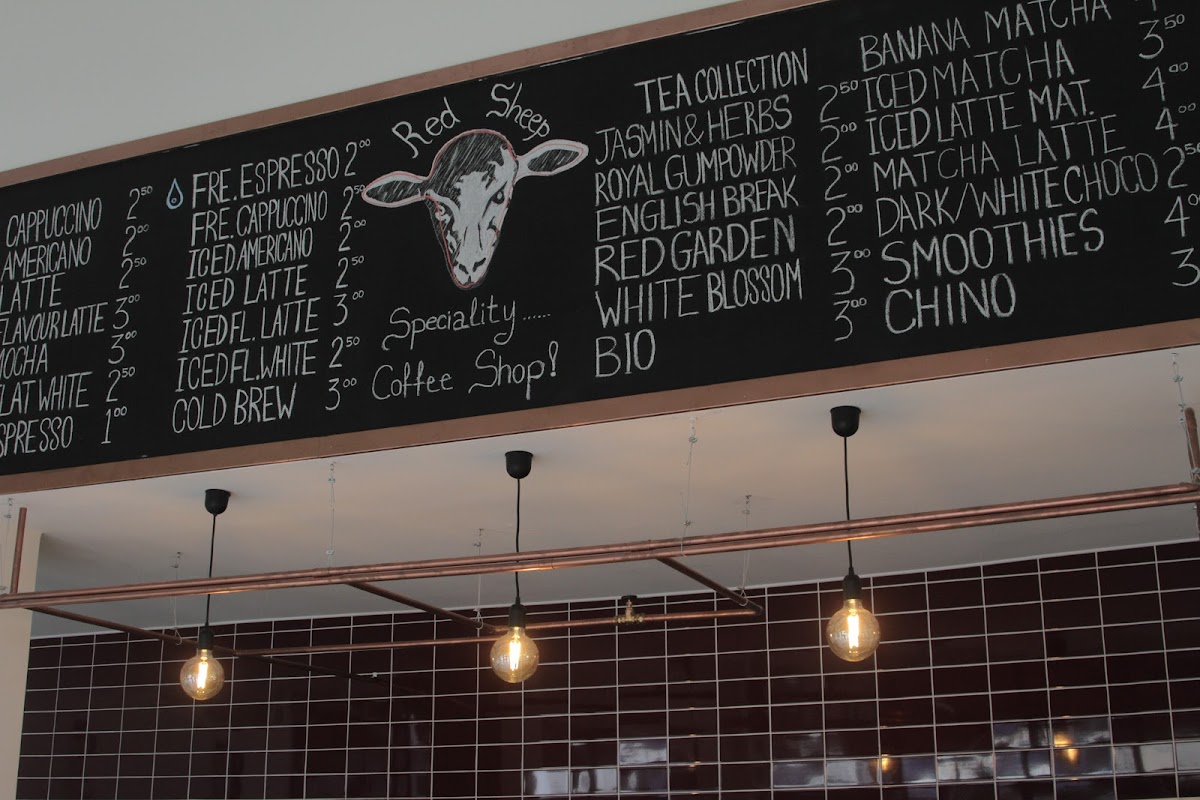 CAPPUCCINO 2⁵⁰
AMERICANO 2⁰⁰
LATTE 2⁵⁰
FLAVOUR LATTE 3⁰⁰
MOCHA 3⁰⁰
LAT WHITE 2⁵⁰
SPRESSO 1⁰⁰
FRE. ESPRESSO 2⁰⁰
FRE. CAPPUCCINO 2⁵⁰
ICED AMERICANO 2⁰⁰
ICED LATTE 2⁵⁰
ICED FL. LATTE 3⁰⁰
ICED FL. WHITE 2⁵⁰
COLD BREW 3⁰⁰
Red Sheep
Speciality......
Coffee Shop!
TEA COLLECTION
JASMIN & HERBS 2⁵⁰
ROYAL GUMPOWDER 2⁰⁰
ENGLISH BREAK 2⁰⁰
RED GARDEN 2⁰⁰
WHITE BLOSSOM 3⁰⁰
BIO 3⁰⁰
BANANA MATCHA
ICED MATCHA 3⁵⁰
ICED LATTE MAT. 4⁰⁰
MATCHA LATTE 4⁰⁰
DARK/WHITE CHOCO 2⁵⁰
SMOOTHIES 4⁰
CHINO 3